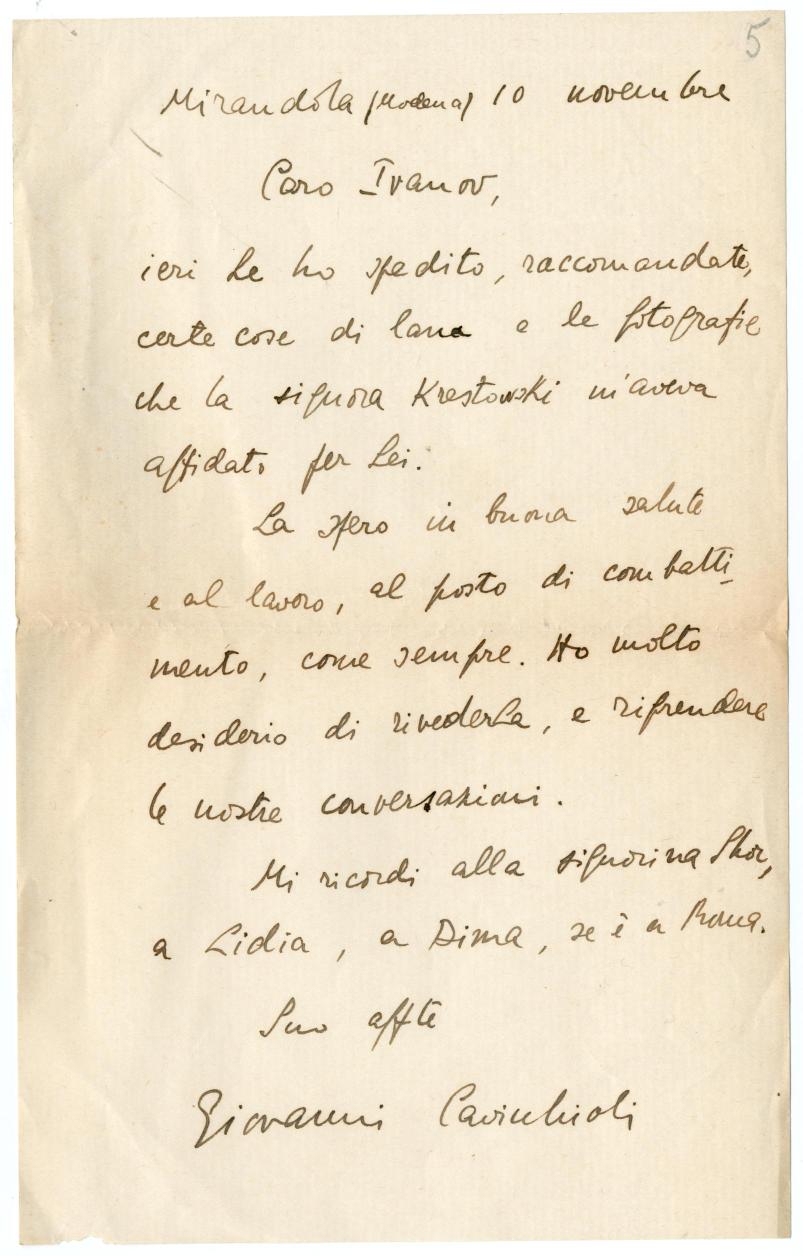 5
Mirandola (Modena) 10 novembre
Caro Ivanov,
ieri Le ho spedito, raccomandate,
certe cose di lana e le fotografie
che la signora Krestowski m'aveva
affidato per Lei.
La spero in buona salute
e al lavoro, al posto di combatti-
mento, come sempre. Ho molto
desiderio di rivederLa, e riprendere
le nostre conversazioni.
Mi ricordi alla signorina Shor,
a Lidia, a Dima, se è a Roma.
Suo affte
Giovanni Cavicchioli